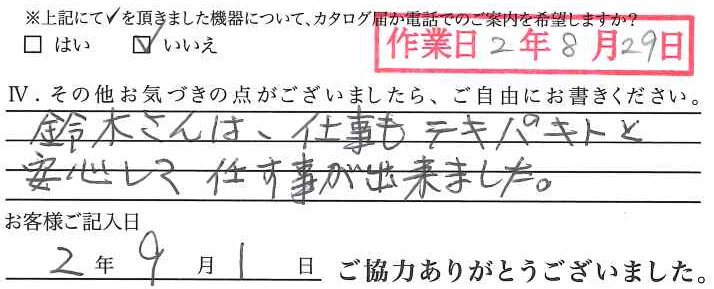 ※上記にて✓を頂きました機器について、カタログ届か電話でのご案内を希望しますか?
□ はい ☑ いいえ
作業日 2年8月29日
Ⅳ.その他お気づきの点がございましたら、ご自由にお書きください。
鈴木さんは、仕事もテキパキトと
安心して任す事が出来ました。
お客様ご記入日
2年9月1日 ご協力ありがとうございました。